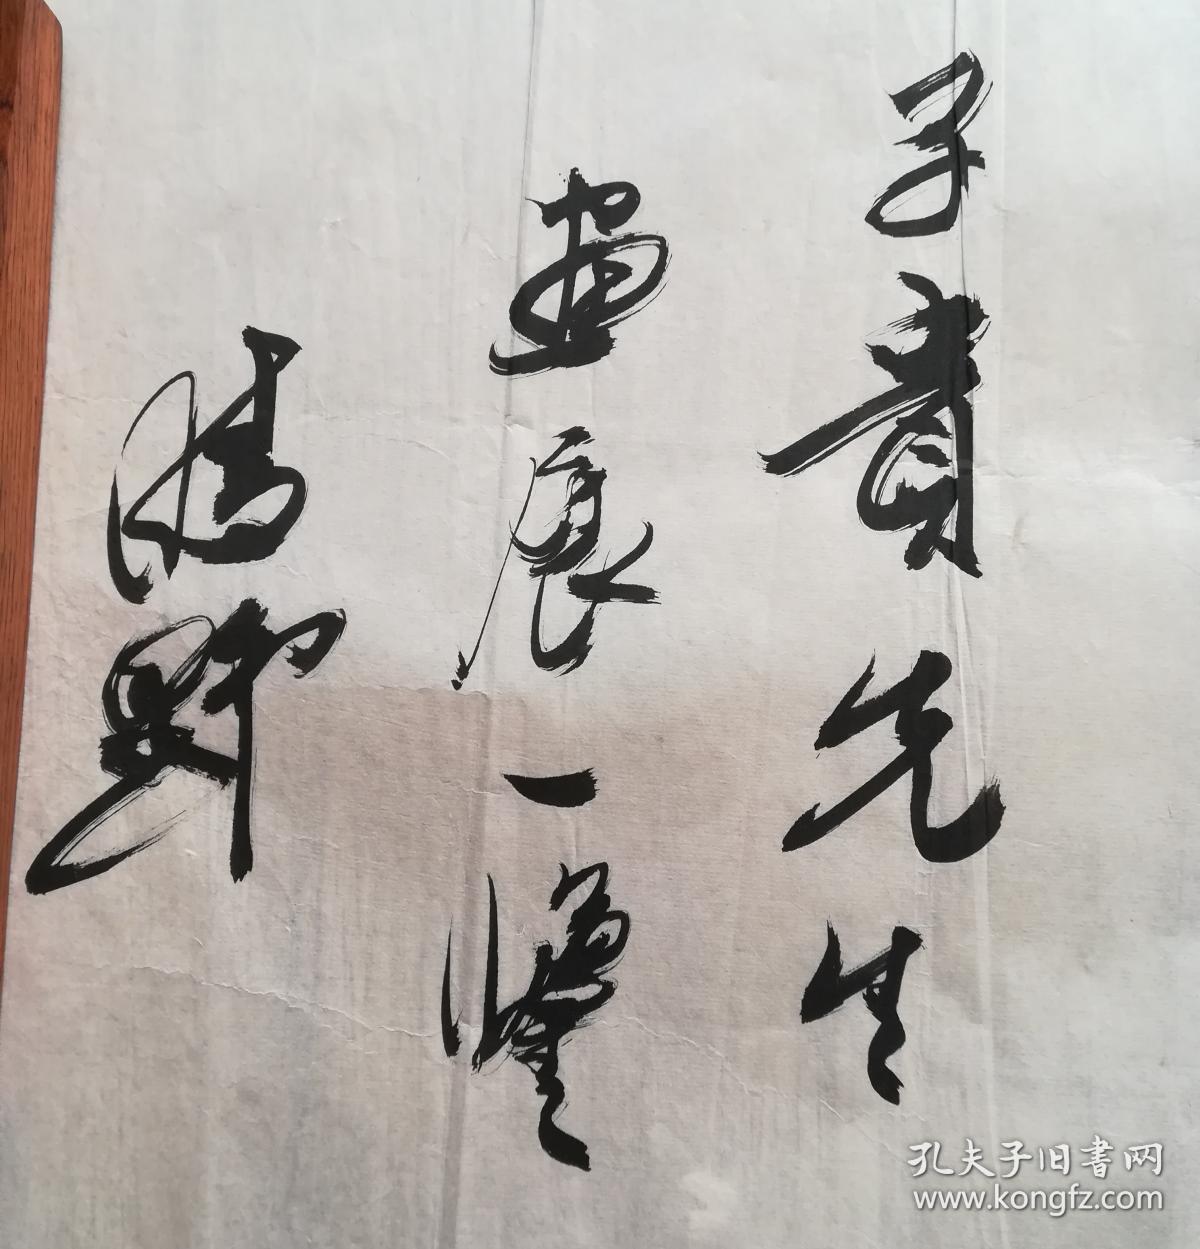 子貴先生
畫展一
野
孔夫子旧書网
www.kongfz.com